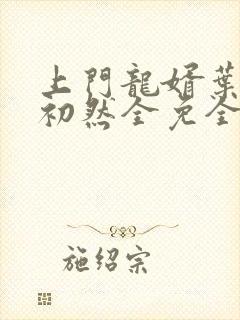 上門龍婿葉
初然全免全
施绍宗